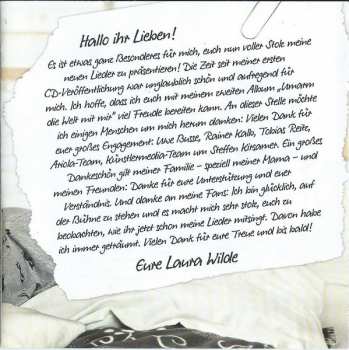 Hallo ihr Lieben!
Es ist etwas ganz Besonderes für mich, euch nun voller Stolz meine
neuen Lieder zu präsentieren! Die Zeit seit meiner ersten
CD-Veröffentlichung war unglaublich schön und aufregend für
mich. Ich hoffe, dass ich euch mit meinem zweiten Album „Umarm
die Welt mit mir“ viel Freude bereiten kann. An dieser Stelle möchte
ich einigen Menschen um mich herum danken: Vielen Dank für
euer großes Engagement: Uwe Busse, Rainer Kalb, Tobias Reitz,
Ariola-Team, Künstlermedia-Team um Steffen Kirsamer. Ein großes
Dankeschön gilt meiner Familie – speziell meiner Mama – und
meinen Freunden: Danke für eure Unterstützung und euer
Verständnis. Und danke an meine Fans: Ich bin glücklich, auf
der Bühne zu stehen und es macht mich sehr stolz, euch zu
beobachten, wie ihr jetzt schon meine Lieder mitsingt. Davon habe
ich immer geträumt. Vielen Dank für eure Treue und bis bald!
Eure Laura Wilde